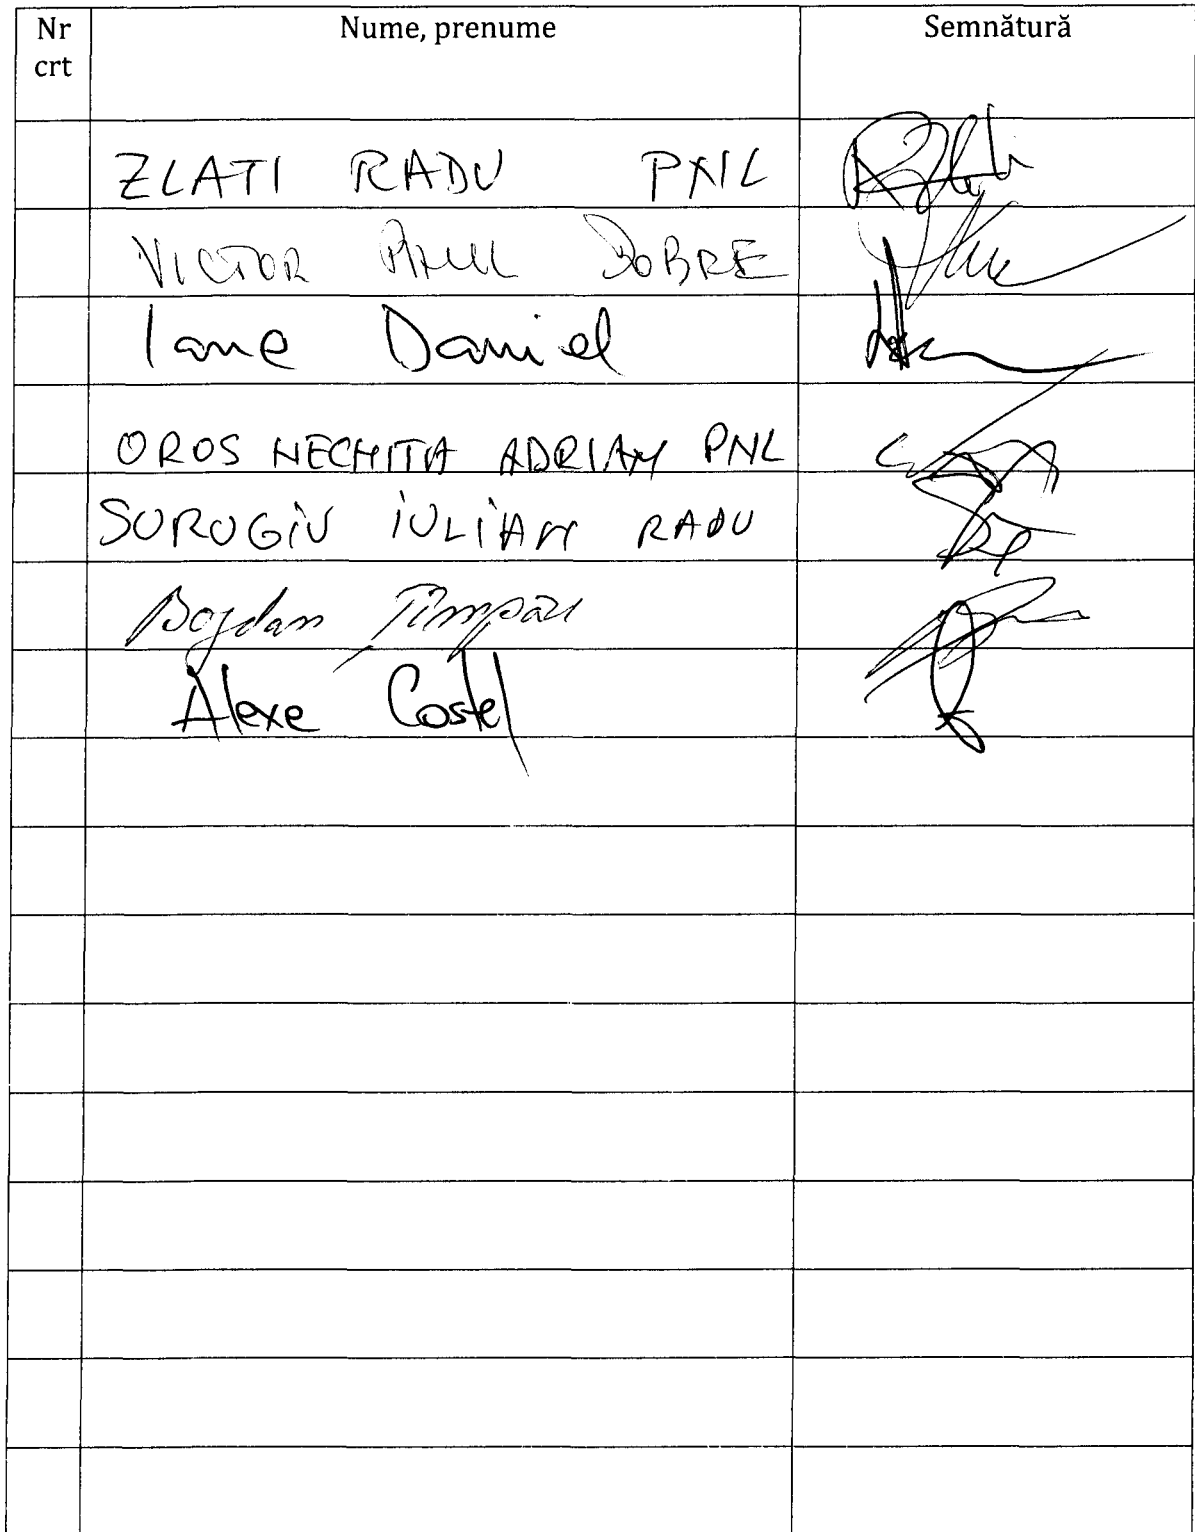 Nr crt Nume, prenume Semnătură
ZLATI RADU PNL
VICTOR PAUL DOBRE
Iane Daniel
OROS NECHITA ADRIAN PNL
SURUGIU IULIAN RADU
Bogdan
Alexe Costel